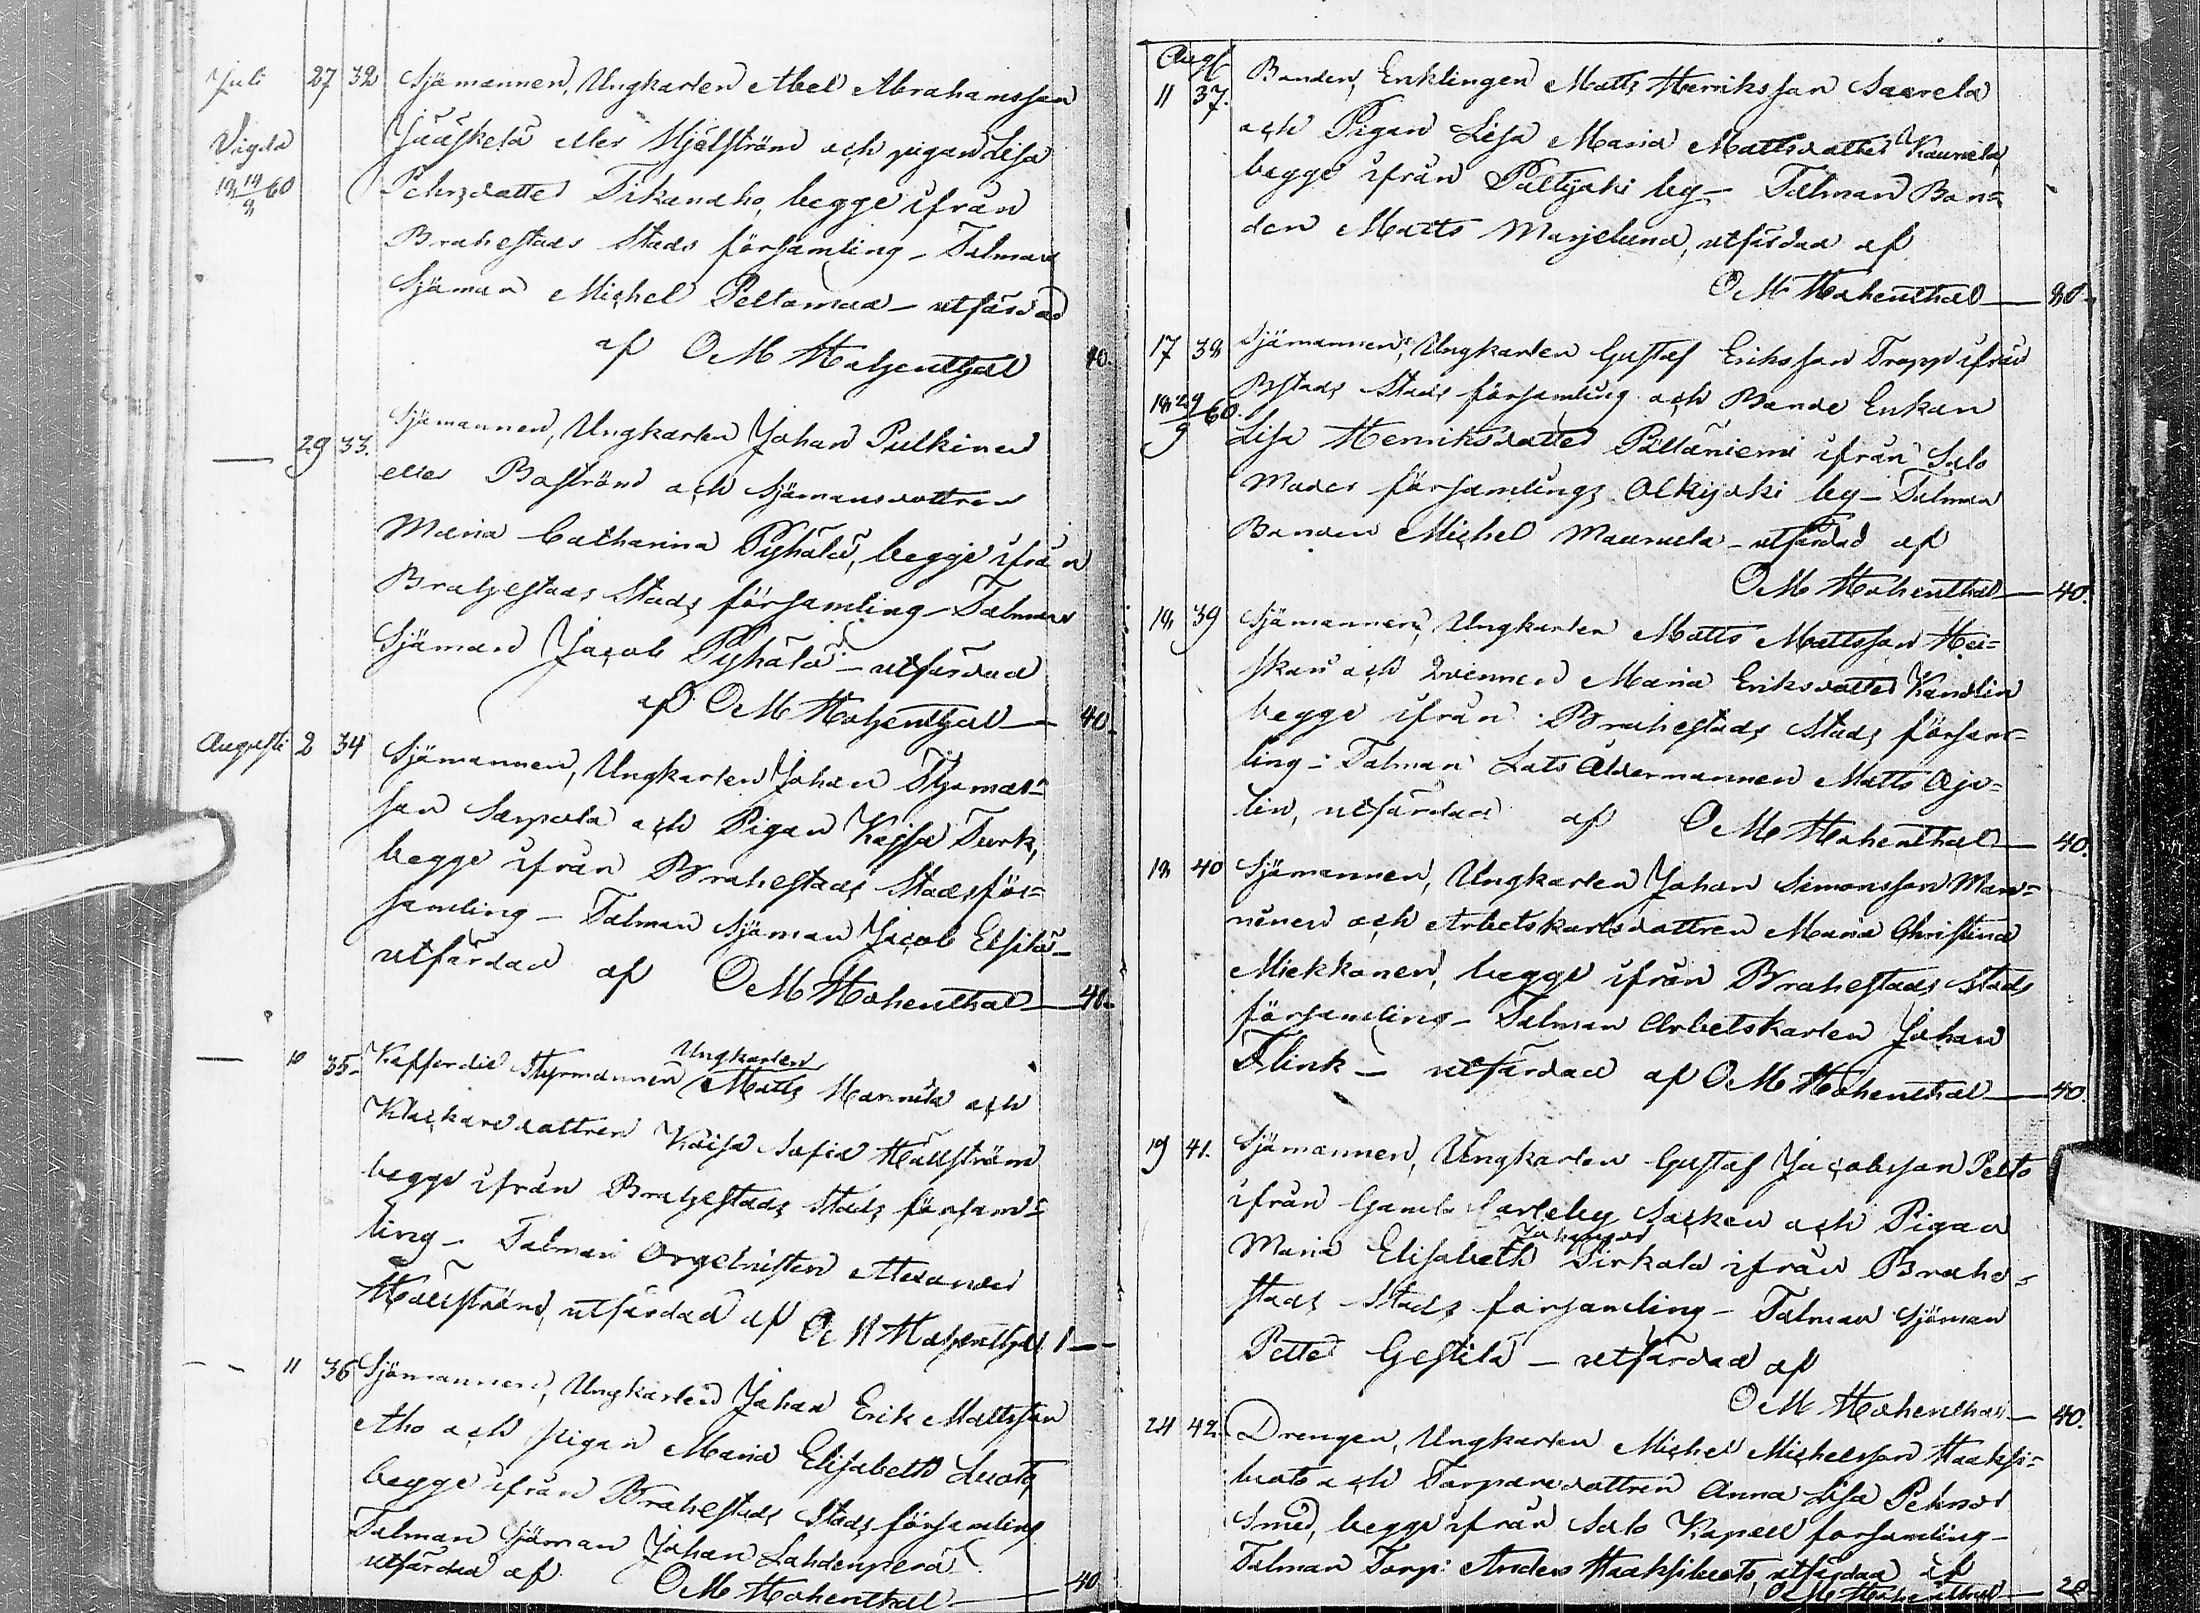 Juli 27 32 Sjömannen, Ungkarlen Abel Abrahamsson
Vigda Jääskelä eller Hjelström och pigan Lisa
18 14/8 60 Pehrsdotter Tikanaho, begge ifrån
Brahestads Stads församling – Talman
Sjöman Michel Peltomaa – utfärdad
af O M Hohenthal 40.
— 29 33. Sjömannen, Ungkarlen Johan Pulkinen
eller Boström och Sjömansdottren
Maria Catharina Pyhälä, begge ifrån
Brahestads Stads församling – Talman
Sjöman Jacob Pyhälä – utfärdad
af O M Hohenthal — 40.
Augusti 2 34 Sjömannen, Ungkarlen Johan Thomas=
son Sarpola och Pigan Kajsa Turk,
begge ifrån Brahestads Stads för=
samling – Talman Sjöman Jacob Elsilä –
utfärdad af O M Hohenthal — 40.
— 10 35. Kofferdie Styrmannen Ungkarlen Matts Mannila och
Klockaredottren Kaisa Sofia Hällström
begge ifrån Brahestads Stads försam=
ling – Talman Orgelnisten Alexander
Hällström, utfärdad af O M Hohenthal 1 —
— 11 36 Sjömannen, Ungkarlen Johan Erik Mattsson
Aho och pigan Maria Elisabeth Luoto,
begge ifrån Brahestads Stads församling
Talman Sjöman Johan Lahdenperä
utfärdad af O M Hohenthal — 40
Aug
11 37. Bonden, Enklingen Matts Henriksson Saarela
och Pigan Lisa Maria Mattsdotter Kaurela,
begge ifrån Pattijoki by – Talman Bon=
den Matts Marjelund, utfärdad af
O M Hohenthal — 80.
17 38 Sjömannen, Ungkarlen Gustaf Eriksson Tropp ifrån
18 29/9 60. Bstads Stads församling och Bonde Enkan
Lisa Henriksdotter Pältäniemi ifrån Salo
Moder församlings Olkijoki by – Talman
Bonden Michel Maunula – utfärdad af
O M Hohenthal — 40.
18 39 Sjömannen, Ungkarlen Matts Mattsson Hei=
skari och Qvinnan Maria Eriksdotter Kandlin
begge ifrån Brahestads Stads försam=
ling – Talman Lots Åldermannen Matts Oja=
lin, utfärdad af O M Hohenthal — 40.
18 40 Sjömannen, Ungkarlen Johan Simonsson Man=
ninen och Arbetskarlsdottren Maria Christina
Miekkonen, begge ifrån Brahestads Stads
församling – Talman Arbetskarlen Johan
Flink – utfärdad af O M Hohenthal — 40.
19 41. Sjömannen, Ungkarlen Gustaf Jacobsson Pelto
ifrån Gamla Carleby Socken och Pigan
Maria Elisabeth Johansd Sirkala ifrån Brahe=
stads Stads församling – Talman Sjöman
Petter Gestilä – utfärdad af
O M Hohenthal — 40.
24 42. Drengen, Ungkarlen Michel Michelsson Haaksi=
luoto och Torparedottren Anna Lisa Pehrsd
Smed, begge ifrån Salo Kapell församling –
Talman Torp: Anders Haaksiluoto, utfärdad af
O M Hohenthal — 20.